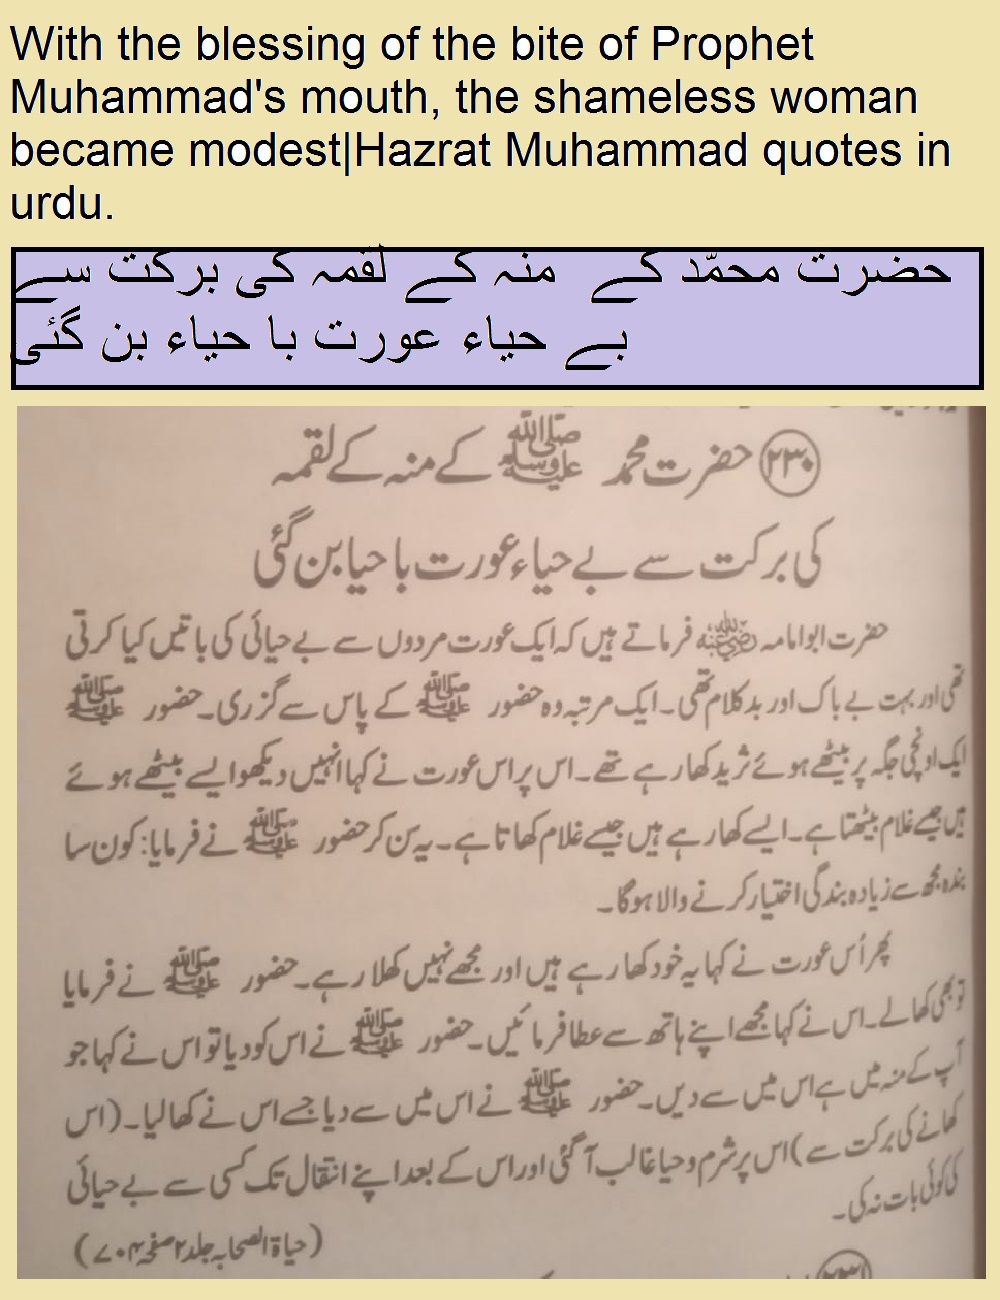 With the blessing of the bite of Prophet
Muhammad's mouth, the shameless woman
became modest|Hazrat Muhammad quotes in
urdu.
حضرت محمّد کے منہ کے لقمہ کی برکت سے
بے حیاء عورت با حیاء بن گئی
۲۳۰ حضرت محمد ﷺ کے منہ کے لقمہ
کی برکت سے بے حیاء عورت با حیا بن گئی
حضرت ابوامامہ رضی اللہ عنہ فرماتے ہیں کہ ایک عورت مردوں سے بے حیائی کی باتیں کیا کرتی
تھی اور بہت بے باک اور بدکلام تھی۔ ایک مرتبہ وہ حضور ﷺ کے پاس سے گزری۔ حضور ﷺ
ایک اونچی جگہ پر بیٹھے ہوئے ثرید کھا رہے تھے۔ اس پر اس عورت نے کہا انہیں دیکھو ایسے بیٹھے ہوئے
ہیں جیسے غلام بیٹھتا ہے۔ ایسے کھا رہے ہیں جیسے غلام کھاتا ہے۔ یہ سن کر حضور ﷺ نے فرمایا: کون سا
بندہ مجھ سے زیادہ بندگی اختیار کرنے والا ہوگا۔
پھر اُس عورت نے کہا یہ خود کھا رہے ہیں اور مجھے نہیں کھلا رہے۔ حضور ﷺ نے فرمایا
تو بھی کھالے۔ اس نے کہا مجھے اپنے ہاتھ سے عطا فرمائیں۔ حضور ﷺ نے اس کو دیا تو اس نے کہا جو
آپ کے منہ میں ہے اس میں سے دیں۔ حضور ﷺ نے اس میں سے دیا جسے اس نے کھالیا۔ (اس
کھانے کی برکت سے) اس پر شرم و حیا غالب آ گئی اور اس کے بعد اپنے انتقال تک کسی سے بے حیائی
کی کوئی بات نہ کی۔
(حیاۃ الصحابہ جلد ۲ صفحہ ۷۰۴)
۲۳۱